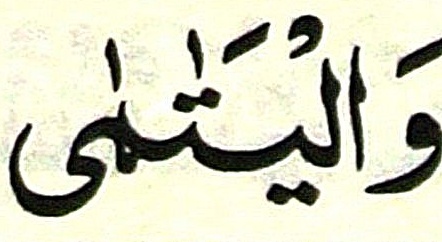 وَالْيَتٰمٰى